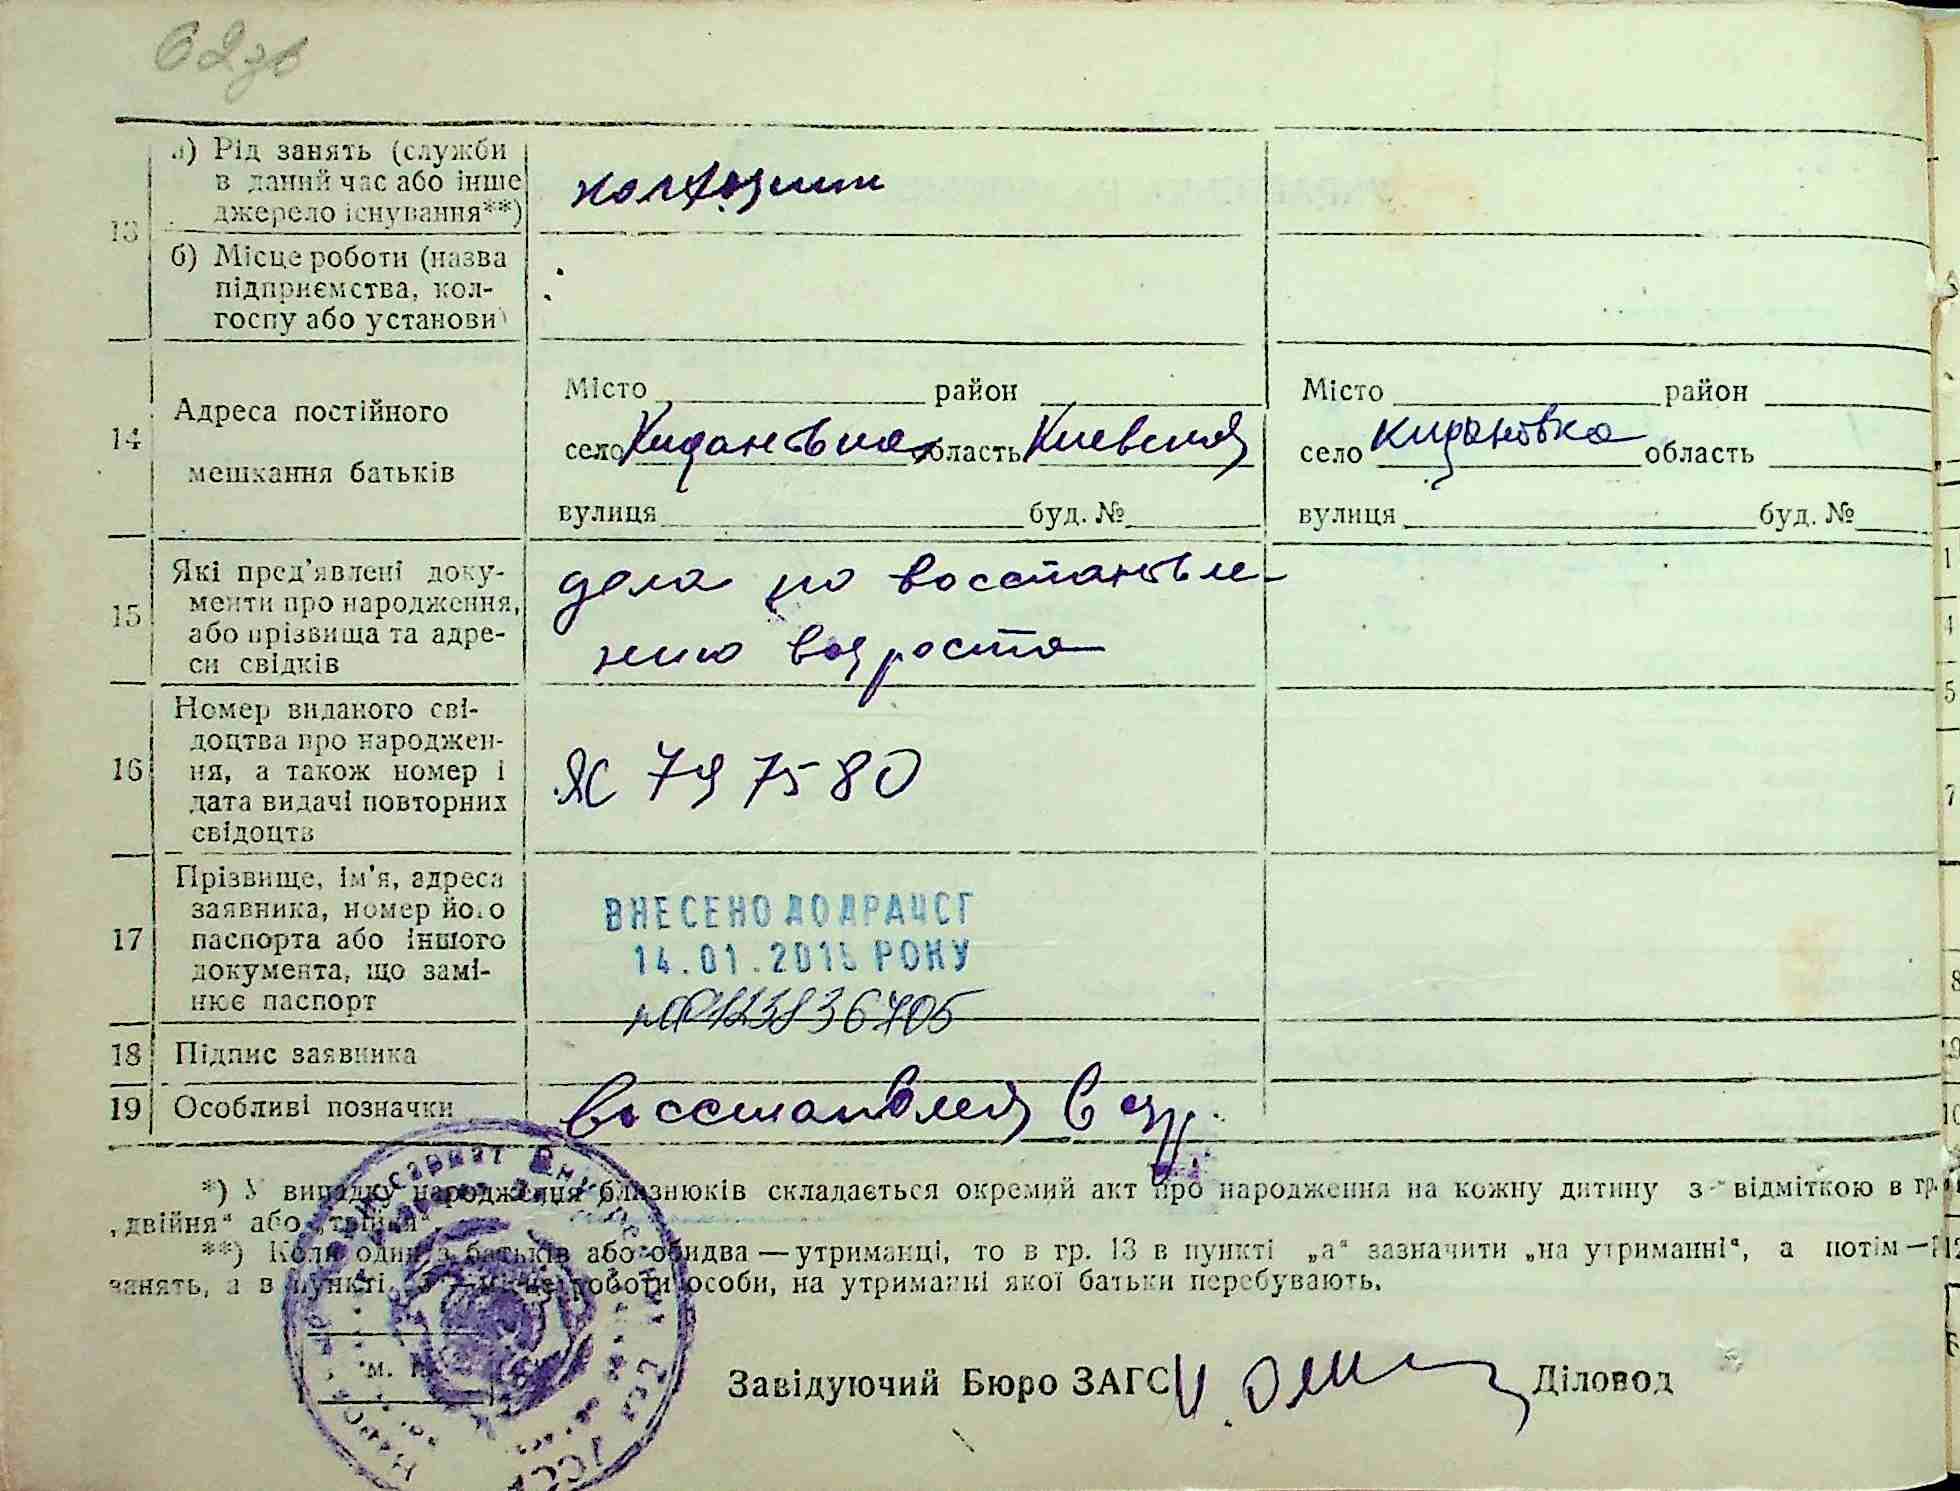 62зв
а) Рід занять (служби
в даний час або інше
джерело існування**)
колхозник
13
б) Місце роботи (назва
підприємства, кол-
госпу або установи)
14
Адреса постійного
мешкання батьків
Місто район
село Кидановка область Киевская
вулиця буд. №
Місто район
село Кидановка область
вулиця буд. №
15
Які пред'явлені доку-
менти про народження,
або прізвища та адре-
си свідків
дела по восстановле-
нию возраста
16
Номер виданого сві-
доцтва про народжен-
ня, а також номер і
дата видачі повторних
свідоцтв
ЯС 797580
17
Прізвище, ім'я, адреса
заявника, номер його
паспорта або іншого
документа, що замі-
нює паспорт
ВНЕСЕНО ДО ДРАЦСГ
14.01.2015 РОКУ
18 Підпис заявника
19 Особливі позначки
*) У випадку народження близнюків складається окремий акт про народження на кожну дитину з відміткою в гр.
„двійня“ або „трійня“.
**) Коли один з батьків або обидва — утриманці, то в гр. 13 в пункті „а“ зазначити „на утриманні“, а потім —
занять, а в пункті роботи особи, на утриманні якої батьки перебувають.
М.
Завідуючий Бюро ЗАГС Діловод